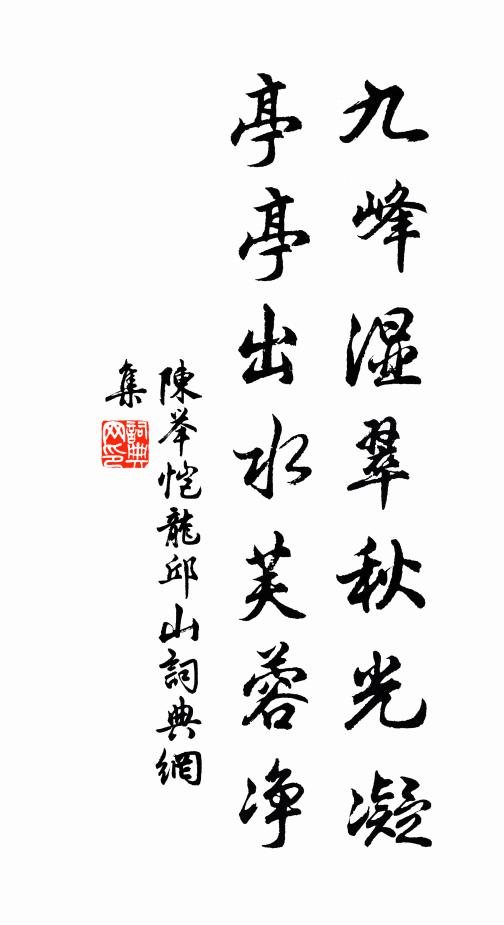 九峰湿翠秋光凝
亭亭出水芙蓉净
陳举愷龍邱山詞典網
集
詞典
网印